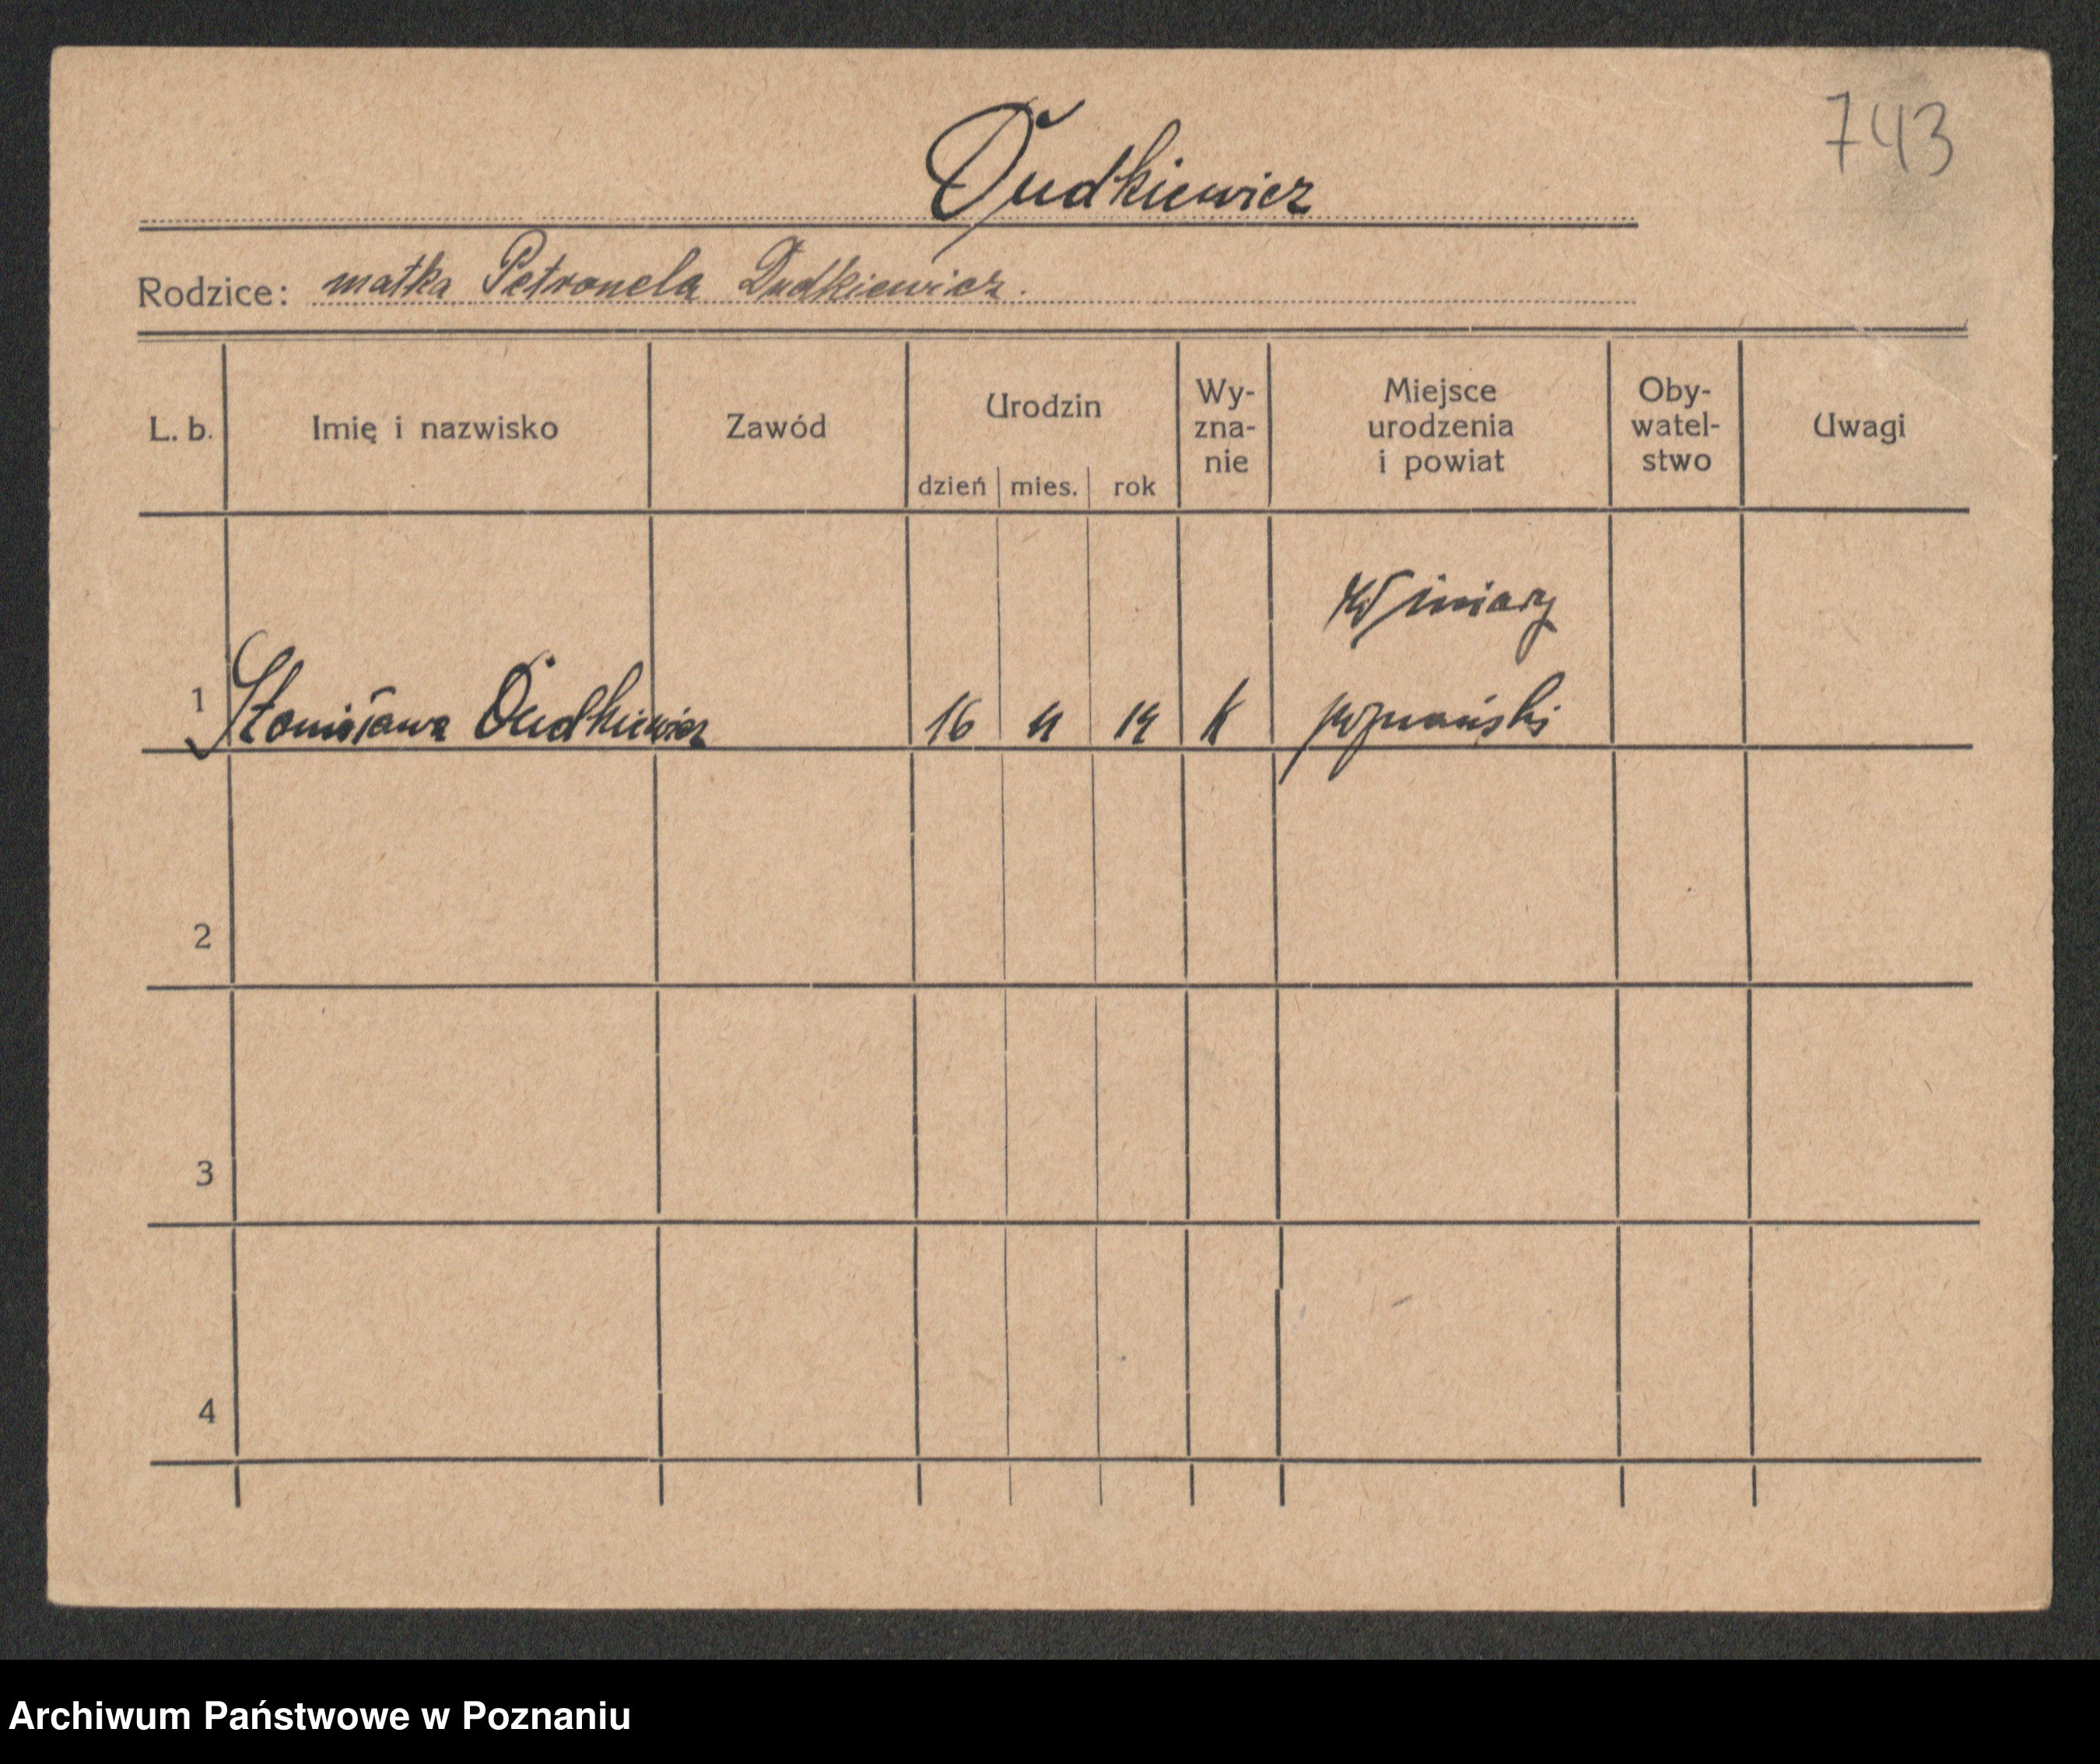 743
Dudkiewicz
Rodzice: matka Petronela Dudkiewicz.
L. b. Imię i nazwisko Zawód Urodzin dzień mies. rok Wy-zna-nie Miejsce urodzenia i powiat Oby-watel-stwo Uwagi
Winiary
1 Stanisława Dudkiewicz 16 14 K poznański
2
3
4
Archiwum Państwowe w Poznaniu